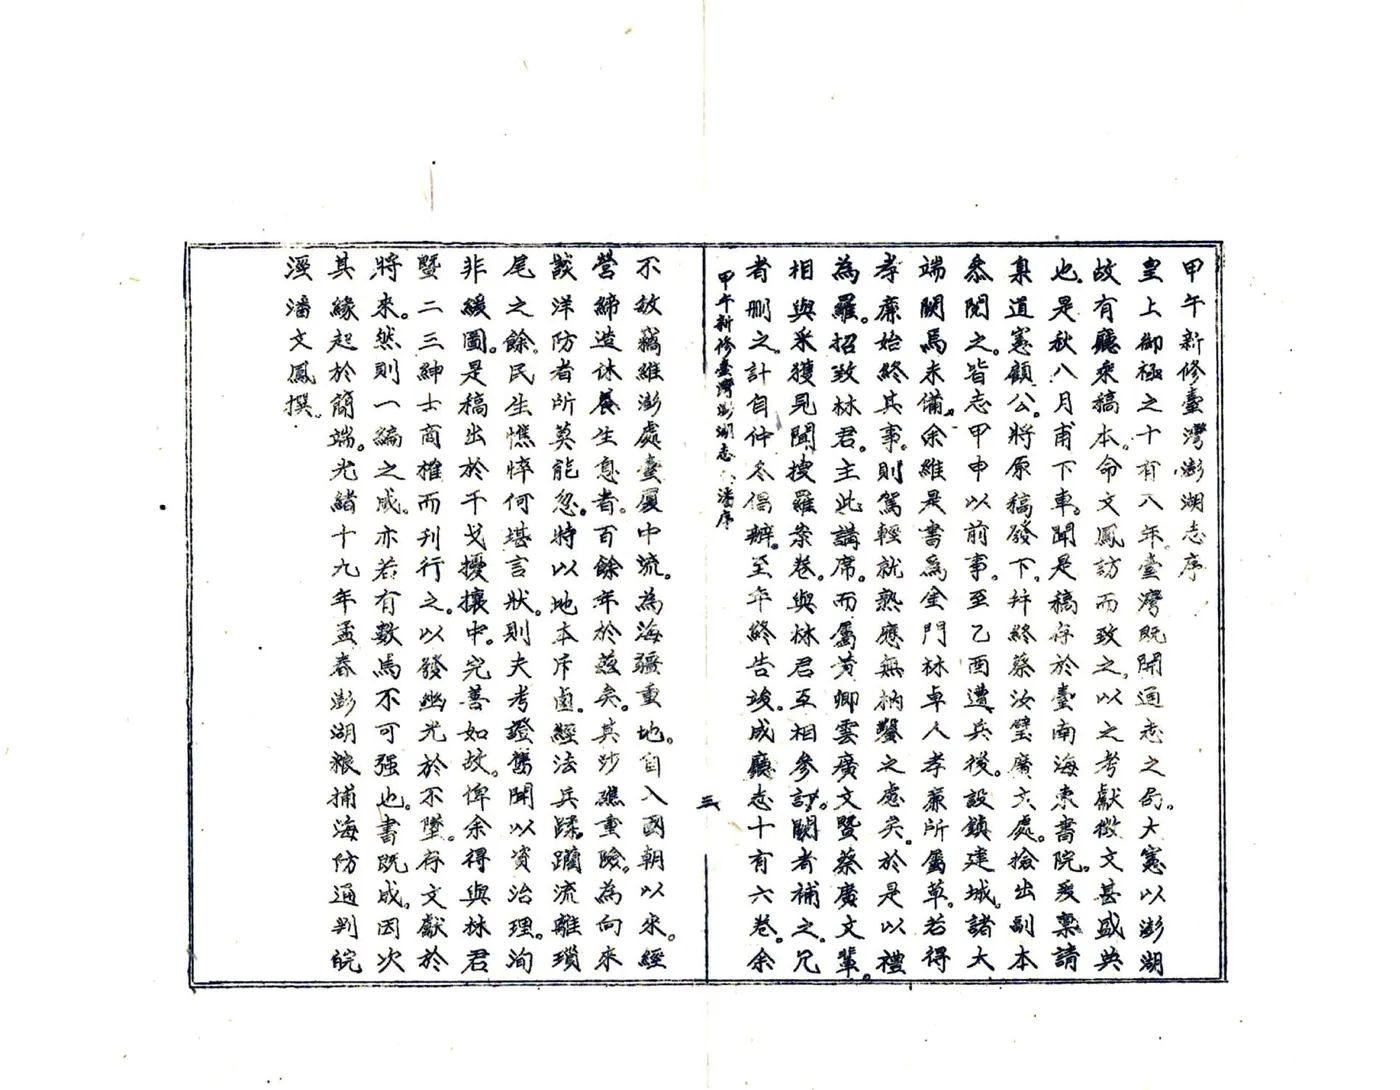 甲午新修臺灣澎湖志序
皇上御極之十有八年。臺灣既開通志之局。大憲以澎湖
故有廳乘稿本。命文鳳訪而致之。以之考獻徵文甚盛典
也。是秋八月甫下車。聞是稿存於臺南海東書院。爰稟請
臬道憲顧公。將原稿發下。幷終蔡汝璧廣文處。撿出副本
叅閱之。皆志甲申以前事。至乙酉遭兵後。設鎮建城。諸大
端闕焉未備。余維是書為金門林卓人孝廉所屬草。若得
孝廉始終其事。則駕輕就熟應無枘鑿之處矣。於是以禮
為羅。招致林君。主此講席。而屬黃卿雲廣文暨蔡廣文輩。
相與采獲見聞。搜羅案卷。與林君互相參訂。闕者補之。冗
者刪之。計自仲冬倡辦。至年終告竣。成廳志十有六卷。余
甲午新修臺灣澎湖志 潘序
三
不敏竊維澎處臺廈中流。為海疆重地。自入國朝以來。經
營締造休養生息者。百餘年於茲矣。其沙礁重險。為向來
談洋防者所莫能忽。特以地本斥鹵。經法兵蹂躪流離瑣
尾之餘。民生憔悴何堪言狀。則夫考證舊聞以資治理。洵
非緩圖。是稿出於干戈擾攘中。完善如故。俾余得與林君
暨二三紳士商榷而刊行之。以發幽光於不墜。存文獻於
將來。然則一編之成。亦若有數焉不可强也。書既成。因次
其緣起於簡端。光緒十九年孟春澎湖粮捕海防通判皖
涇潘文鳳撰。